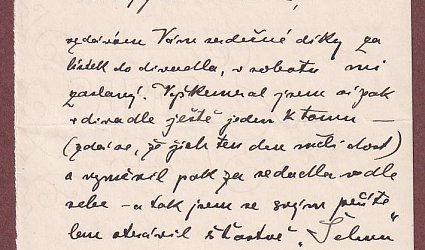 vzdávám Vám srdečné díky za
lístek do divadla, v sobotu mi
zaslaný. Vyškemral jsem si pak
v divadle ještě jeden k tomu —
(zdá se, že jich ten den měli dost)
a vyměnil pak za sedadla vedle
sebe — a tak jsem se svým příte
lem strávil šťastně „Šelmu